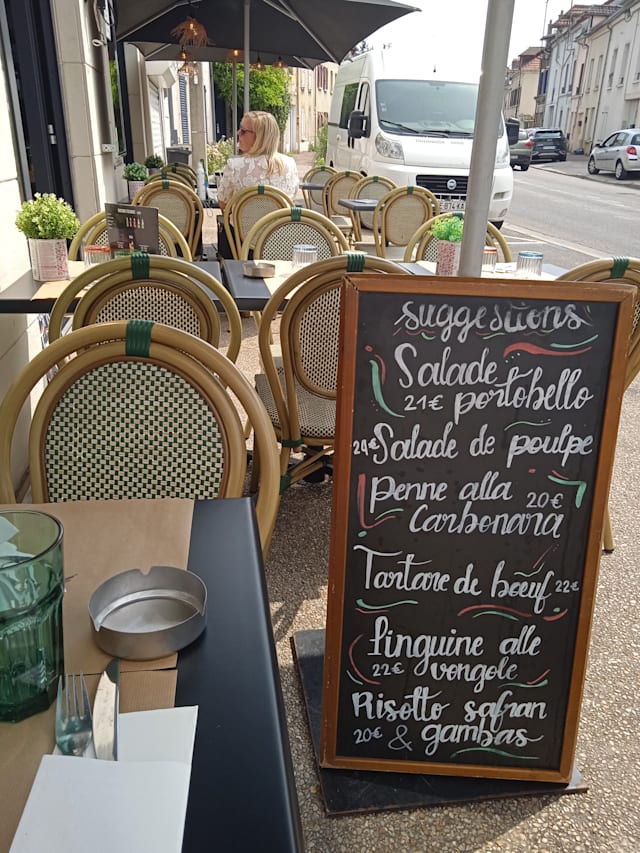 suggestions
Salade
21€ portobello
24€ Salade de poulpe
Penne alla 20€
Carbonara
Tartare de bœuf 22€
Linguine alle
22€ vongole
Risotto safran
20€ & gambas
FIAT